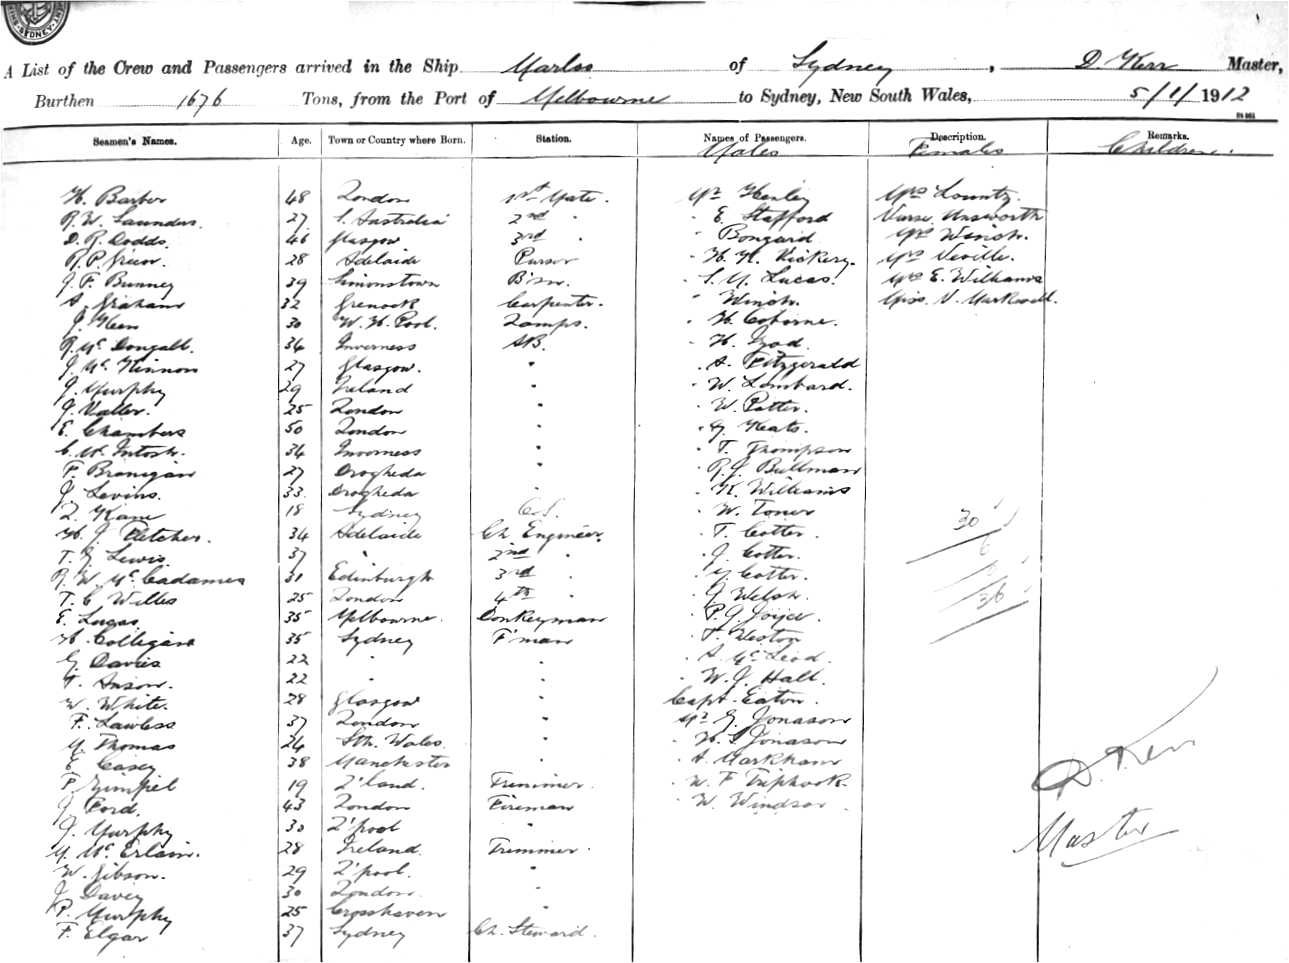 SYDNEY
A List of the Crew and Passengers arrived in the Ship of Sydney, D. Kerr Master,
Burthen 1676 Tons, from the Port of Melbourne to Sydney, New South Wales, 5/1/1912
Seamen's Names. Age. Town or Country where Born. Station. Names of Passengers. Description. Remarks.
Males Females Children.
H. Barber 48 London 1st Mate. Mr Henley Mrs Lountz
R. W. Saunders. 27 S. Australia 2nd " " E. Stafford Nurse Unsworth
D. R. Dodds. 46 Glasgow 3rd " " Bongard Mrs Winch.
R. P. Green. 28 Adelaide Purser " H. H. Vickery. Mrs Neville.
J. F. Bunney 39 Simonstown B'sn. " S. M. Lucas. Mrs E. Williams
A. Graham 32 Greenock Carpenter. " Winch. Miss V. Markwell.
J. Keen 30 W. H. Pool. Lamps. " H. Osborne.
R. McDougall. 34 Inverness AB. " H. Izod.
J. McKinnon 27 Glasgow. " " A. Fitzgerald
J. Murphy 29 Ireland " " W. Lombard.
J. Valler. 25 London " " W. Potter.
E. Chambers 50 London " " G. Keats.
C. McIntosh. 34 Inverness " " T. Thompson
F. Branigan 27 Drogheda " " R. J. Bullman
J. Levins. 33. Drogheda " " K. Williams
L. Kane 18 Sydney O.S. " W. Toner 30
H. J. Fletcher. 34 Adelaide Ch. Engineer. " T. Cotter.
T. G. Lewis. 37 " 2nd " " J. Cotter. 6
R. W. McCadames 31 Edinburgh 3rd " " M. Cotter.
T. C. Willes 25 London 4th " " J. Welsh. 36
E. Lucas 35 Melbourne. Donkeyman " P. J. Joyce.
H. Colligan 35 Sydney F'man " T. Weston
G. Davies 22 " " " A. McLeod.
T. Anson. 22 " " " W. J. Hall.
W. White. 28 Glasgow " Capt. Eaton.
F. Lawless 37 London " Mr G. Jonason
M. Thomas 24 Sth. Wales. " " H. S. Jonason
E. Casey 38 Manchester " " A. Markham
P. Gimpel 19 L'land. Trimmer. " W. F. Triphook. D. Kerr
J. Ford. 43 London Fireman " W. Windsor.
J. Murphy 30 L'pool " Master
M. McErlain. 28 Ireland. Trimmer.
W. Gibson. 29 L'pool. "
J. Davey 30 London. "
P. Murphy 25 Crosshaven "
F. Elgar 37 Sydney Ch. Steward.